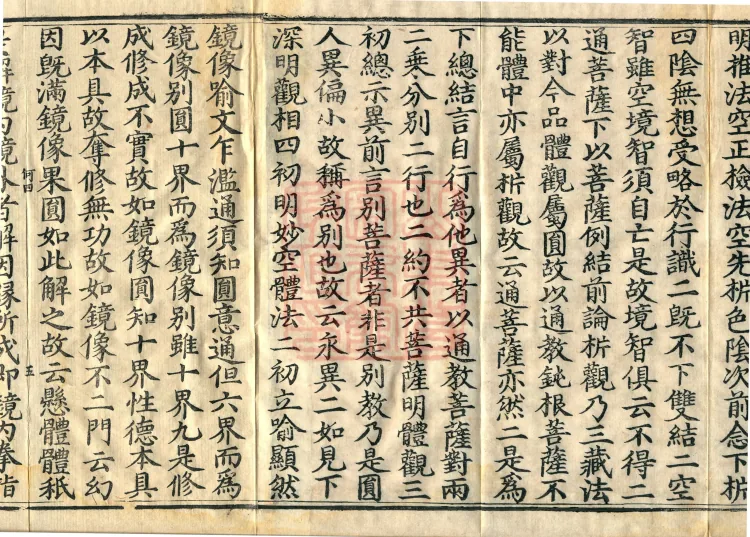 明推法空正檢法空先析色陰次前念下析
四陰無想受略於行識二既不下雙結二空
智雖空境智須自亡是故境智俱云不得二
通菩薩下以菩薩例結前論析觀乃三藏法
以對今品體觀屬圓故以通教鈍根菩薩不
能體中亦屬析觀故云通菩薩亦然二是為
下總結言自行為他異者以通教菩薩對兩
二乘分別二行也二約不共菩薩明體觀三
初總示異前言別菩薩者非是別教乃是圓
人異偏小故稱為別也故云永異二如見下
深明觀相四初明妙空體法二初立喻顯然
鏡像喻文乍濫通須知圓意通但六界而為
鏡像別圓十界而爲鏡像別雖十界九是修
成修成不實故如鏡像圓知十界性德本具
以本具故奪修無功故如鏡像不二門云幻
因既滿鏡像果圓如此解之故云懸體體秖
何四
五